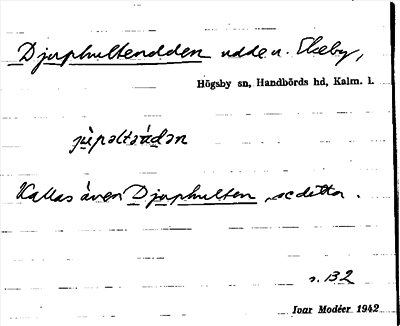 Djuphultendden udde u. Ekeby,
Högsby sn, Handbörds hd, Kalm. l.
Kallas även Djuphulten, se detta.
s. 132
Ivar Modéer 1942